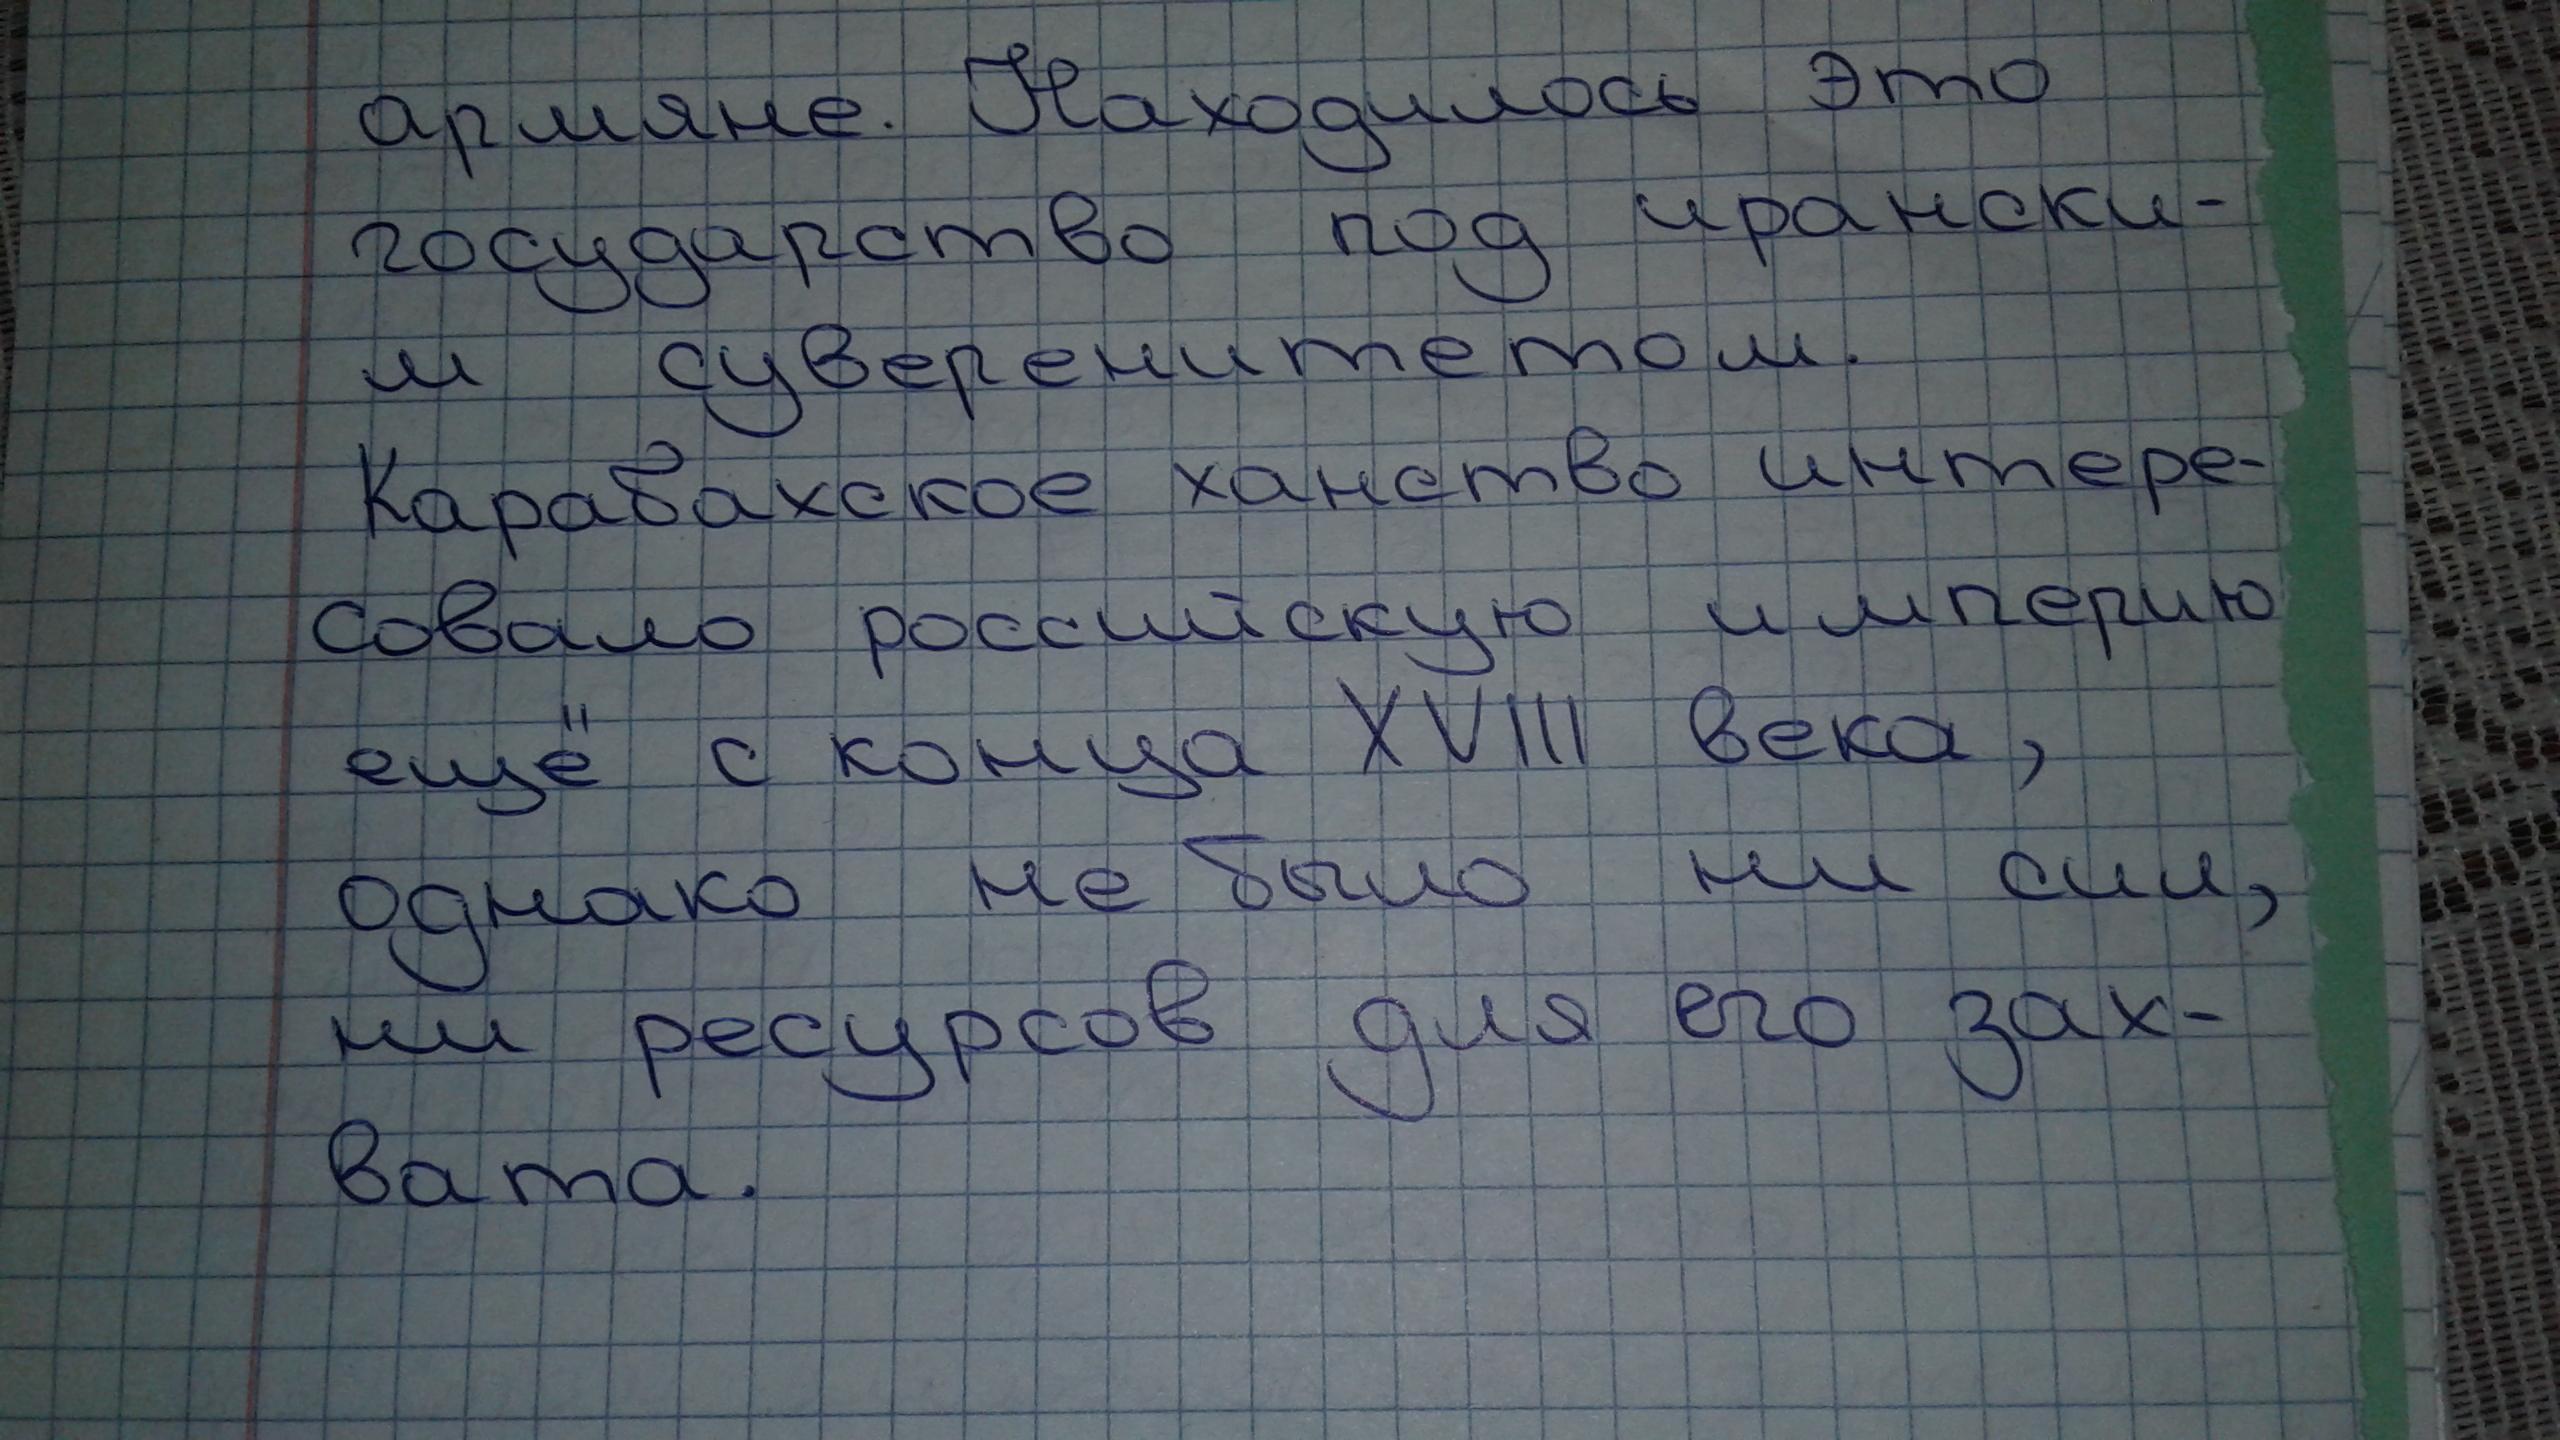 армяне. Находилось это
государство под ирански-
м суверенитетом.
Карабахское ханство интере-
совало российскую империю
ещё с конца XVIII века,
однако не было ни сил,
ни ресурсов для его зах-
вата.